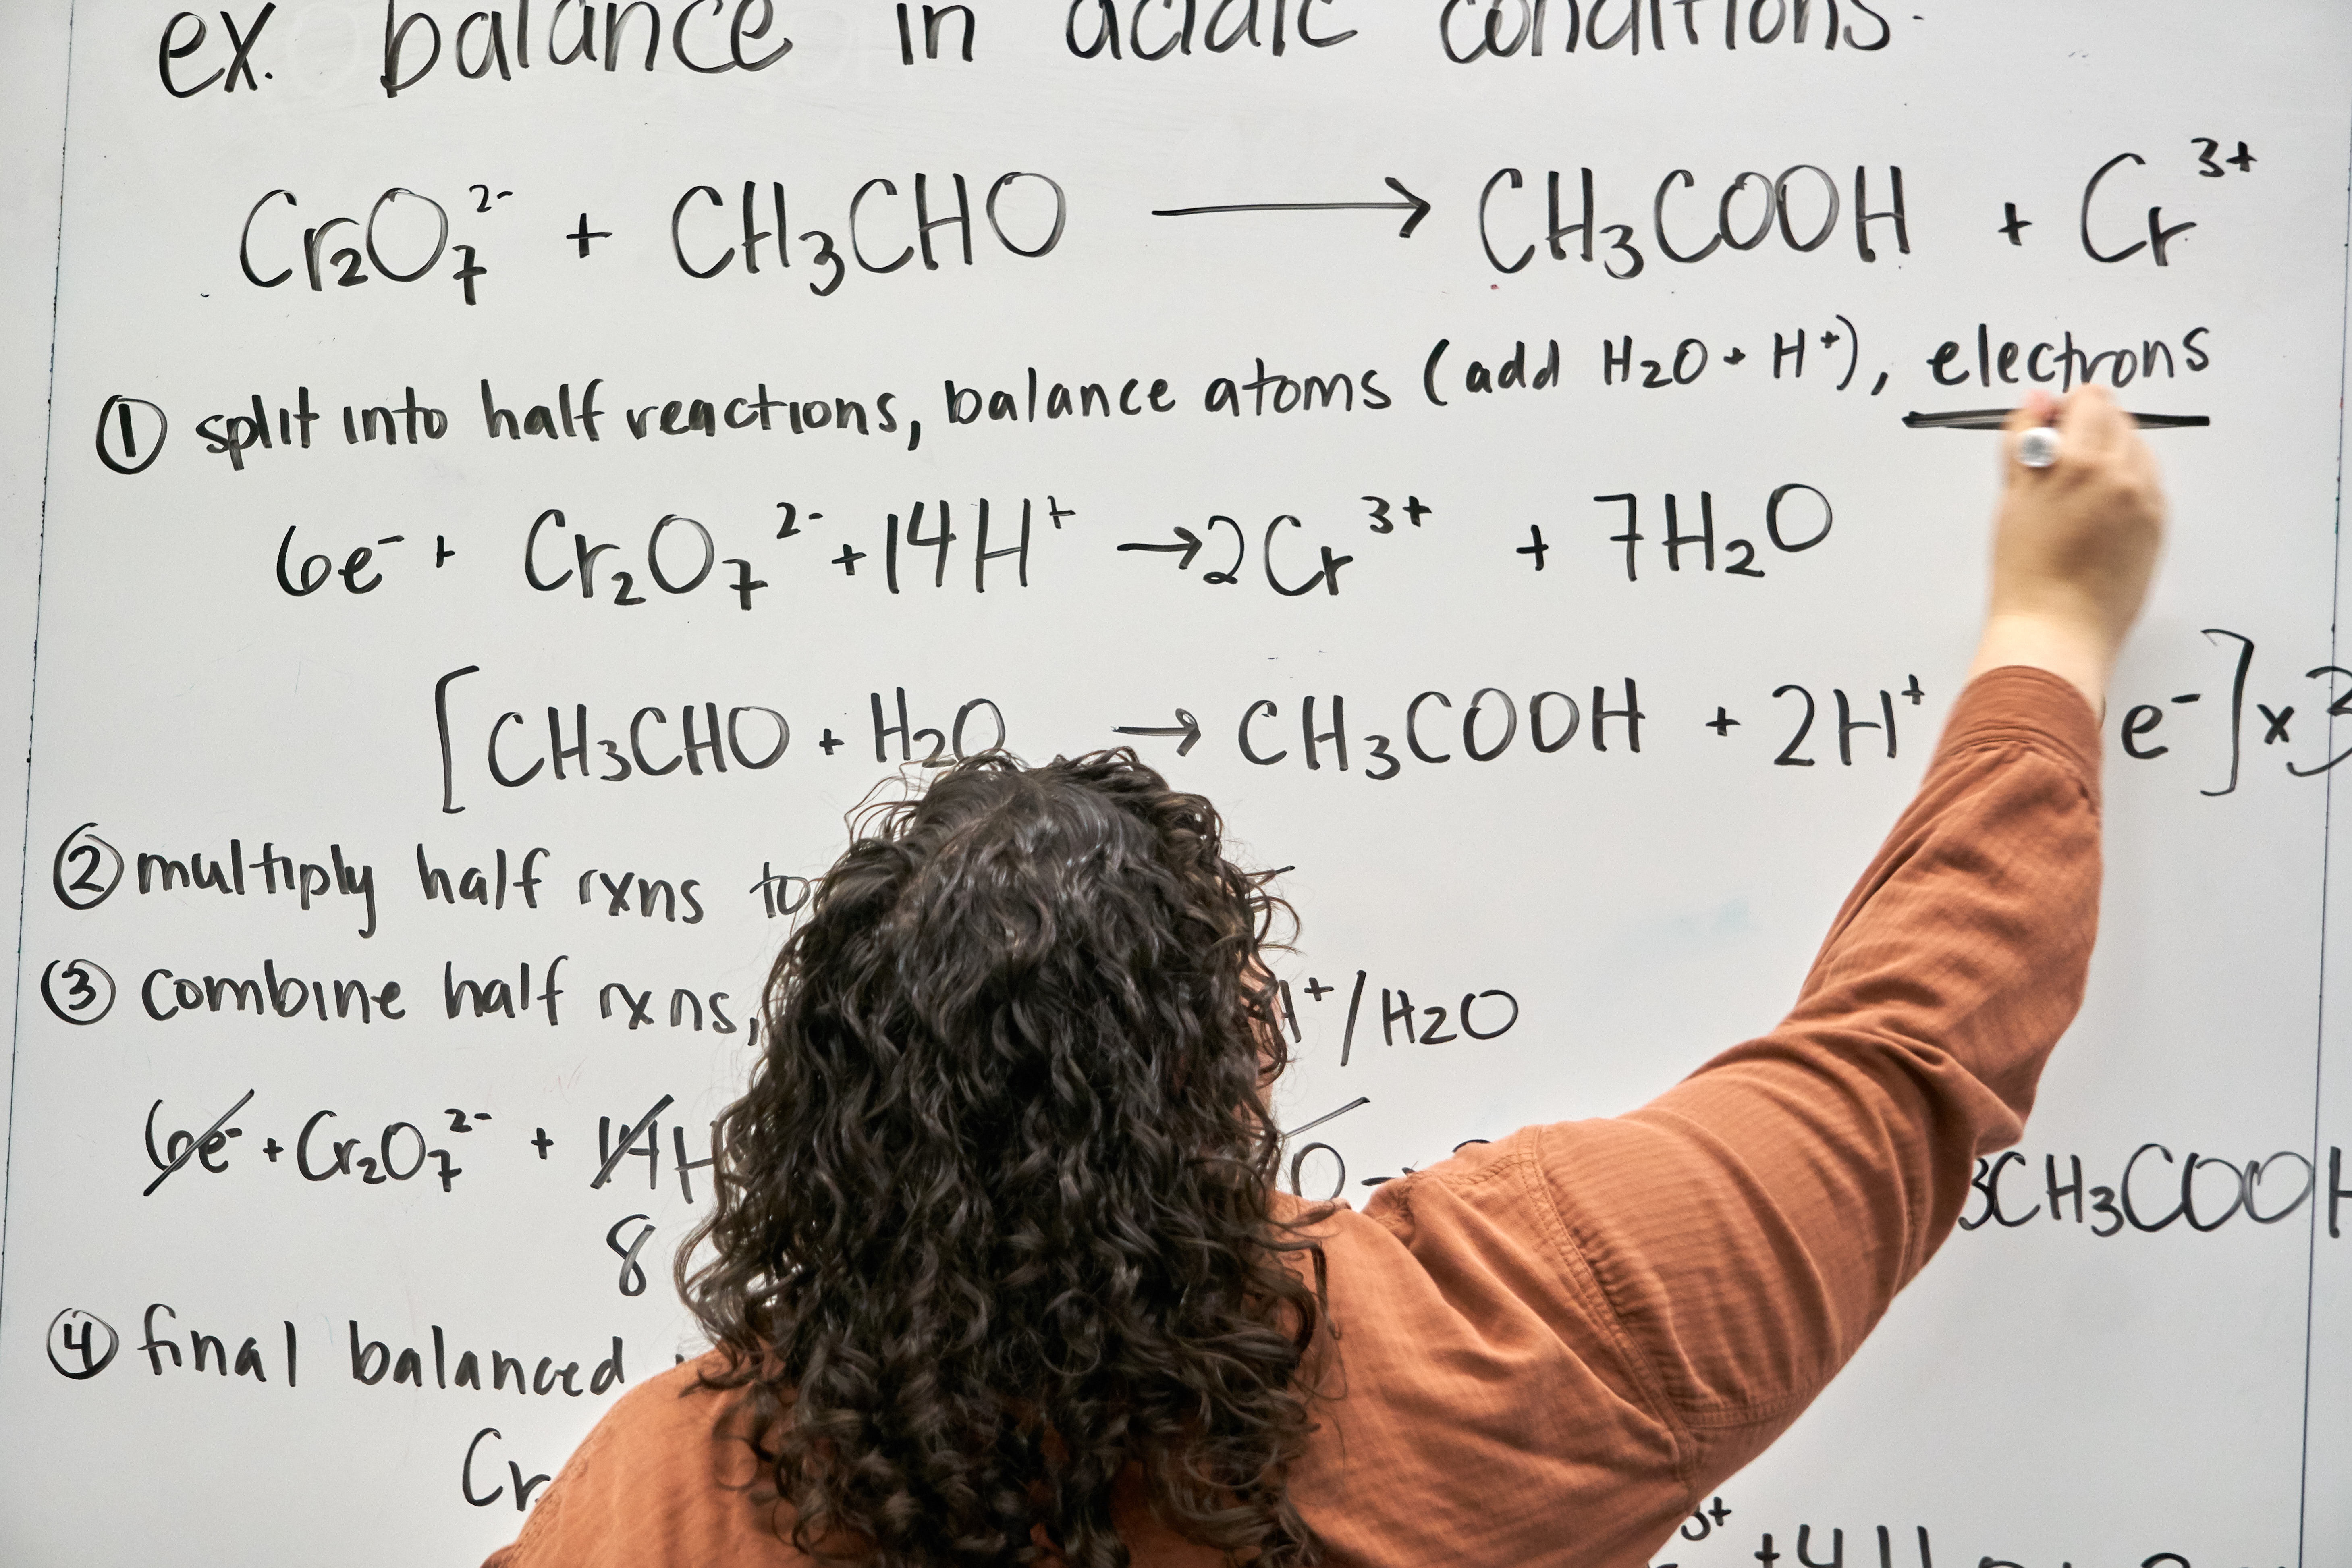 ex. balance in acidic conditions.
Cr₂O₇²⁻ + CH₃CHO → CH₃COOH + Cr³⁺
① split into half reactions, balance atoms (add H₂O + H⁺), electrons
6e⁻ + Cr₂O₇²⁻ + 14H⁺ → 2Cr³⁺ + 7H₂O
[CH₃CHO + H₂O → CH₃COOH + 2H⁺ e⁻] x 3
② multiply half rxns to
③ combine half rxns, H⁺/H₂O
6e⁻ + Cr₂O₇²⁻ + 14H O → 3CH₃COOH
8
④ final balanced
Cr 3+ + 4H